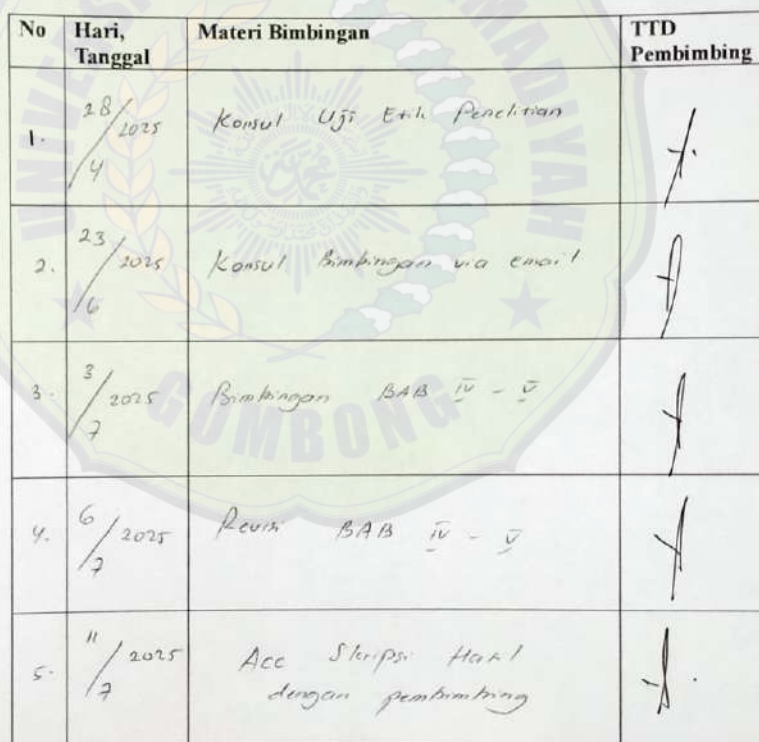 No Hari, Tanggal Materi Bimbingan TTD Pembimbing
1. 28/4 2025 Konsul Uji Etik Penelitian
2. 23/6 2025 Konsul Bimbingan via email
3. 3/7 2025 Bimbingan BAB IV - V
4. 6/7 2025 Revisi BAB IV - V
5. 11/7 2025 Acc Skripsi Hasil
dengan pembimbing
GOMBONG